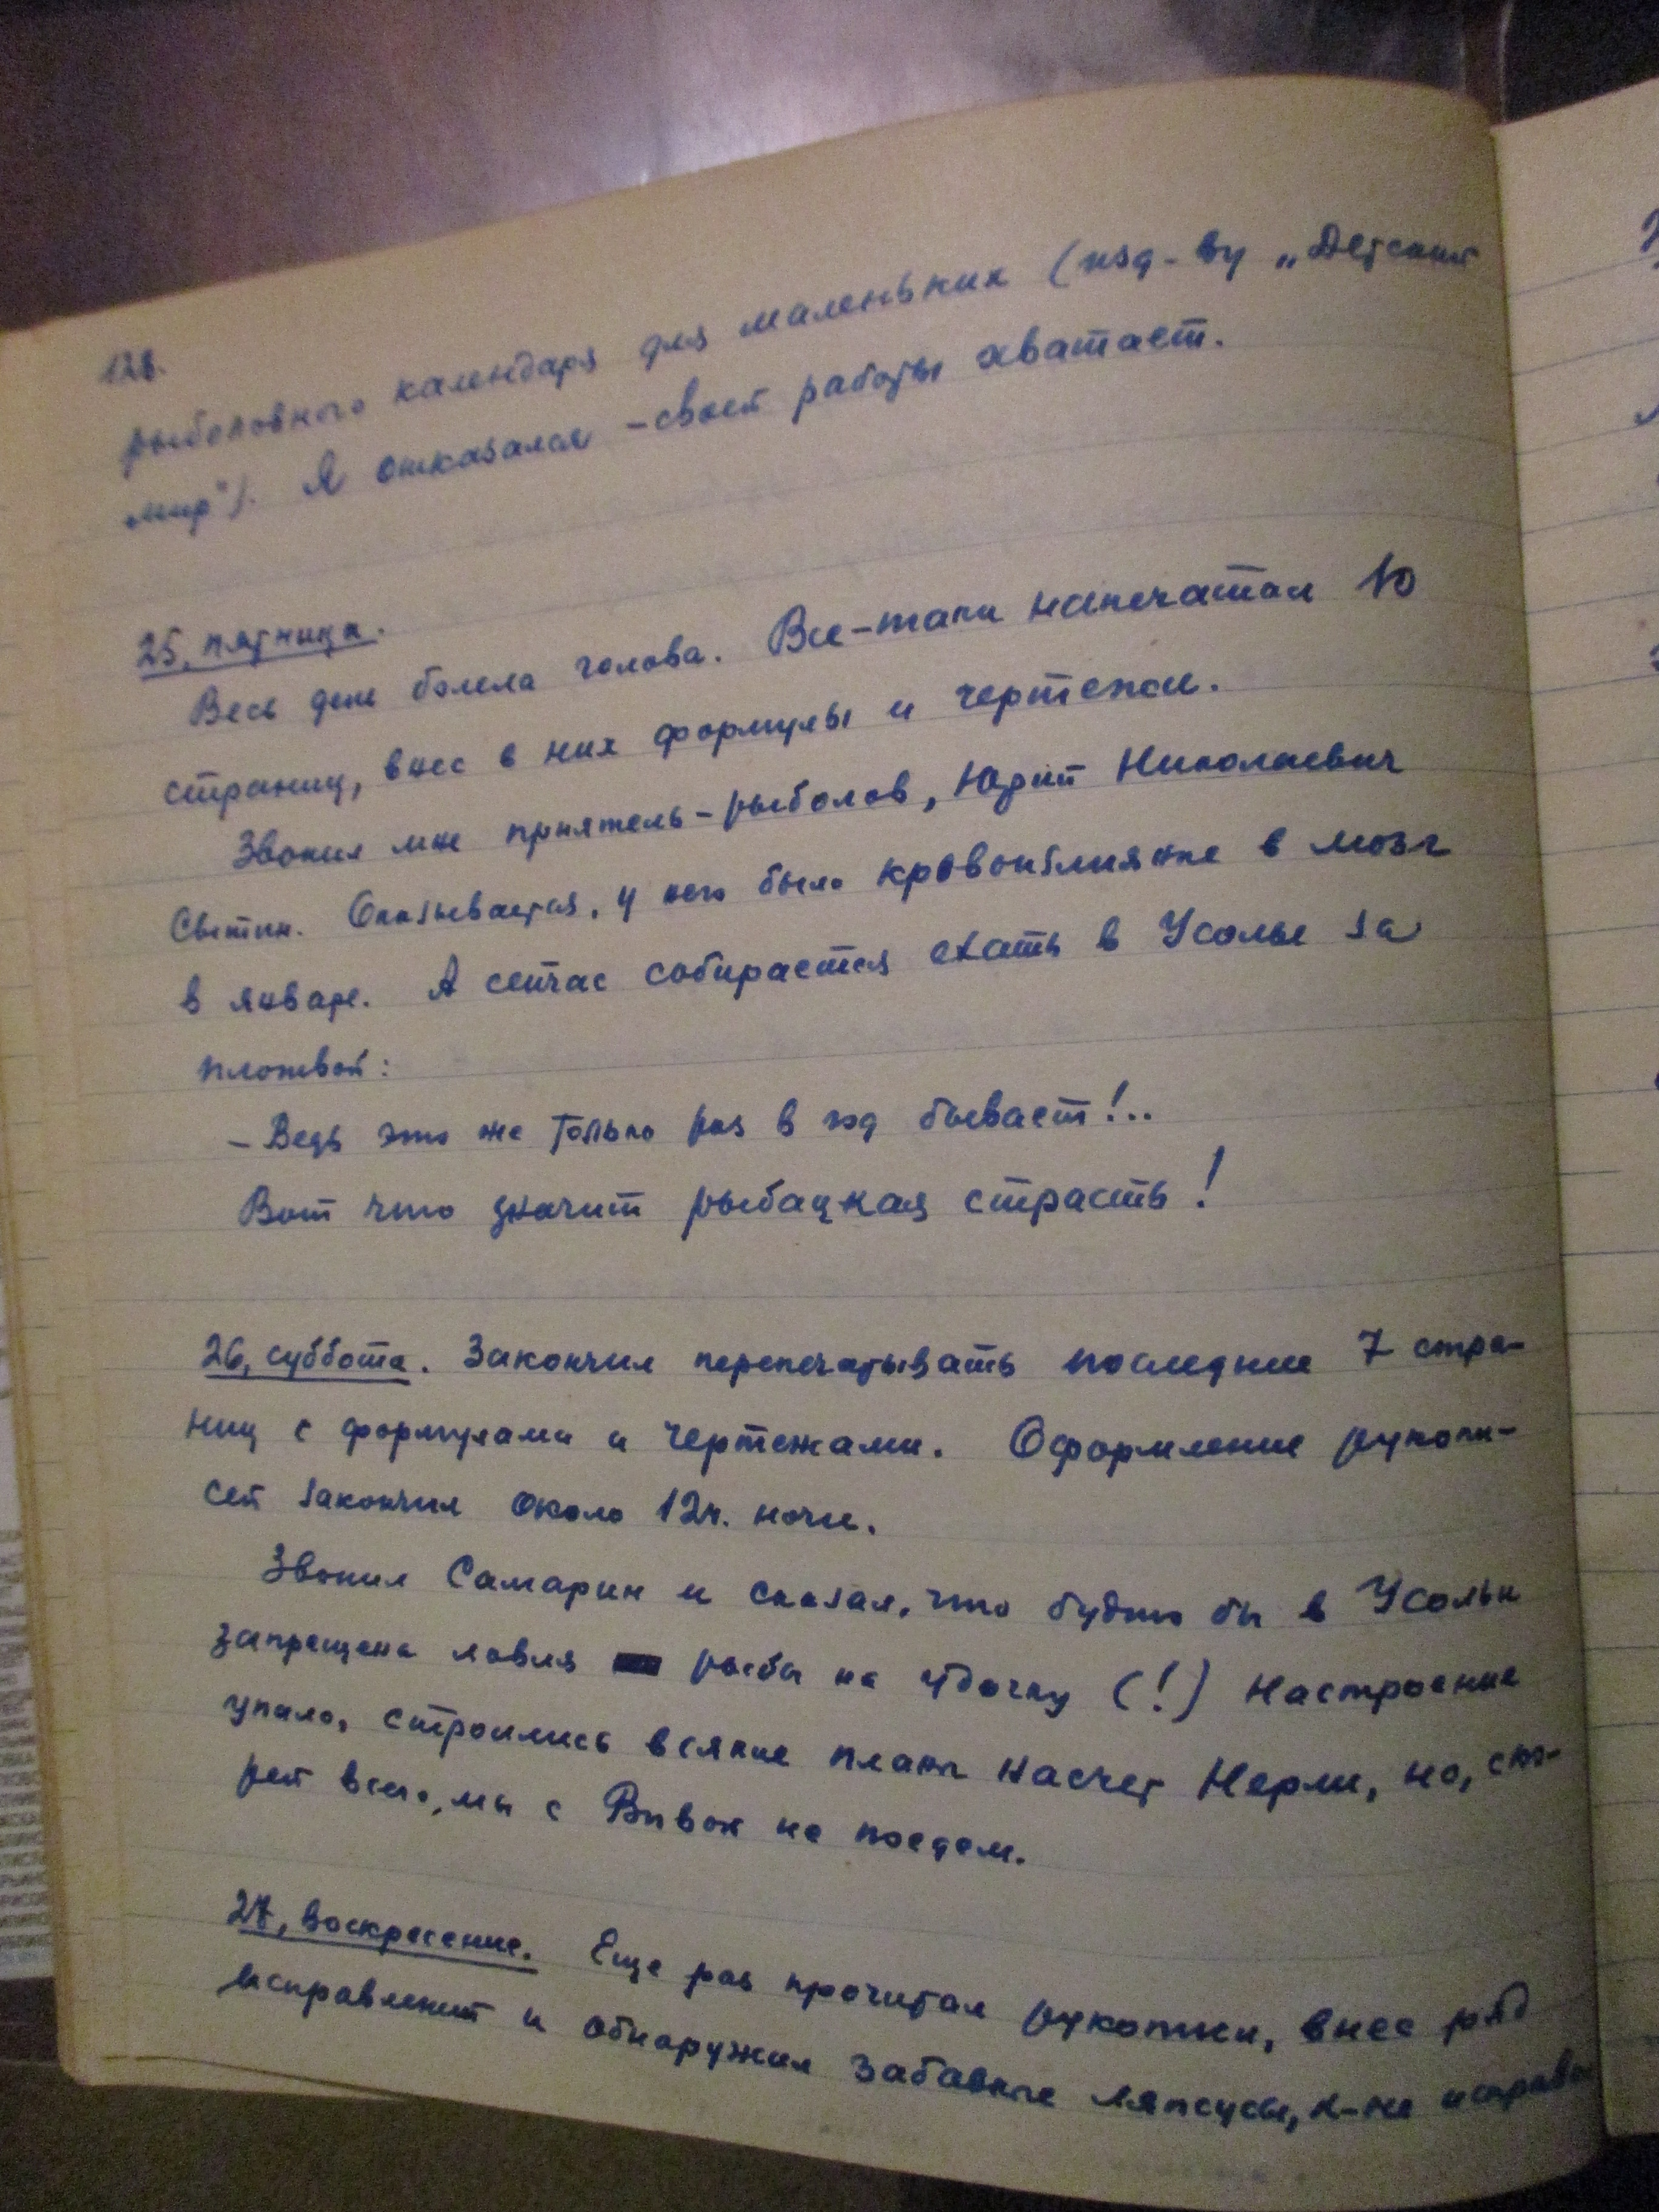 128.
рыболовного календаря для маленьких (изд-ву „Детский
мир"). Я отказался – своей работы хватает.
25, пятница.
Весь день болела голова. Все-таки напечатал 10
страниц, внес в них формулы и чертежи.
Звонил мне приятель-рыболов, Юрий Николаевич
Оказывается, у него было кровоизлияние в мозг
в январе. А сейчас собирается ехать в Усолье за
плотвой:
– Ведь это же только раз в год бывает!..
Вот что значит рыбацкая страсть!
26, суббота. Закончил перепечатывать последние 7 стра-
ниц с формулами и чертежами. Оформление рукопи-
сей закончил около 12ч. ночи.
Звонил Самарин и сказал, что будто бы в Усольи
запрещена ловля рыбы на удочку (!) Настроение
упало, строились всякие планы насчет Нерли, но, ско-
рей всего, мы с не поедем.
27, воскресение. Еще раз прочитал рукописи, внес ряд
исправлений и обнаружил забавные ляпсусы, к-ые исправил